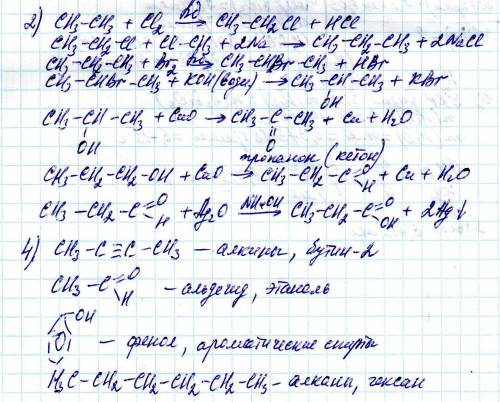 2) CH₃-CH₃ + Cl₂ hν→ CH₃-CH₂Cl + HCl
CH₃-CH₂-Cl + Cl-CH₃ + 2Na → CH₃-CH₂-CH₃ + 2NaCl
CH₃-CH₂-CH₃ + Br₂ → CH₃-CHBr-CH₃ + HBr
CH₃-CHBr-CH₃ + KOH (водн) → CH₃-CH-CH₃ + KBr
OH
CH₃-CH-CH₃ + CuO → CH₃-C-CH₃ + Cu + H₂O
OH O
пропанон (кетон)
CH₃-CH₂-CH₂-OH + CuO → CH₃-CH₂-C=O H + Cu + H₂O
CH₃-CH₂-C=O H + Ag₂O NH₄OH→ CH₃-CH₂-C=O OH + 2Ag↓
4) CH₃-C≡C-CH₃ – алкины, бутин-2
CH₃-C=O H – альдегид, этаналь
OH
– фенол, ароматические спирты
H₃C-CH₂-CH₂-CH₂-CH₂-CH₃ – алканы, гексан